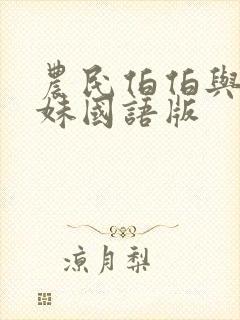 農民伯伯與
妹國語版
涼月梨